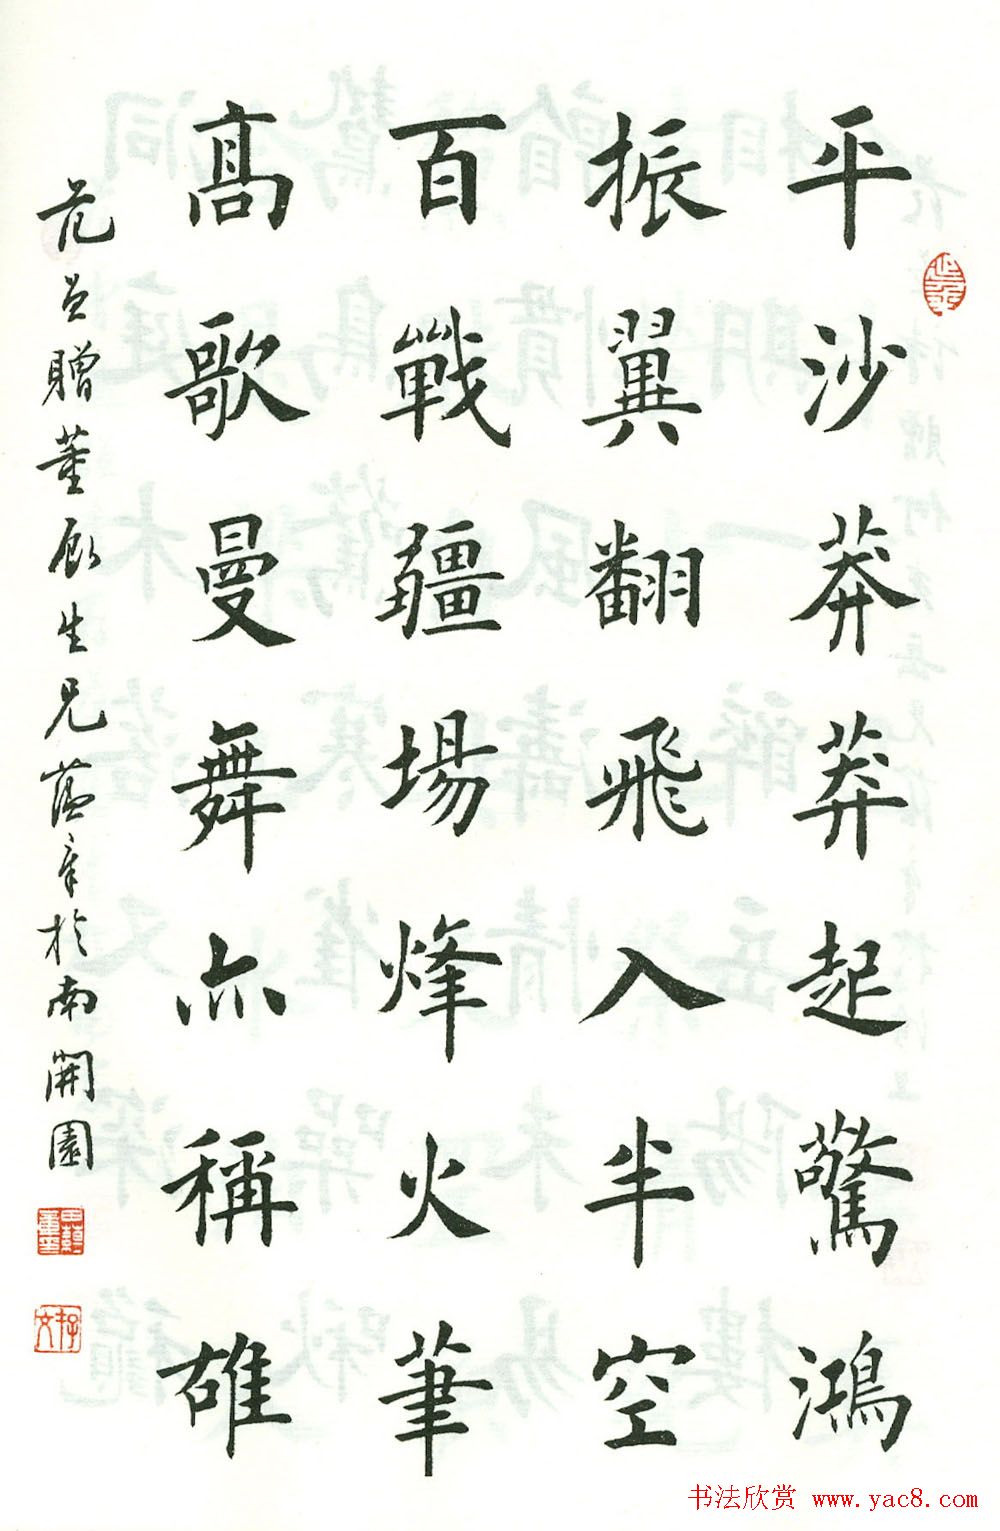 平沙莽莽起驚鴻
振翼翻飛入半空
百戰疆場烽火筆
高歌曼舞亦稱雄
范曾贈董顧生兄 蔭章於南開園
书法欣赏 www.yac8.com